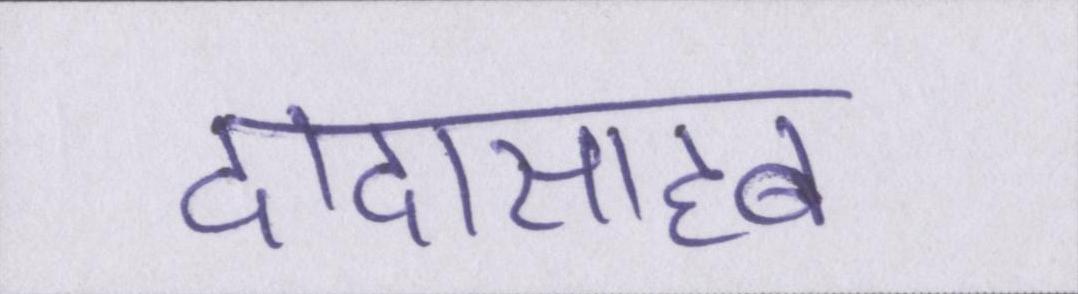 दादासाहब